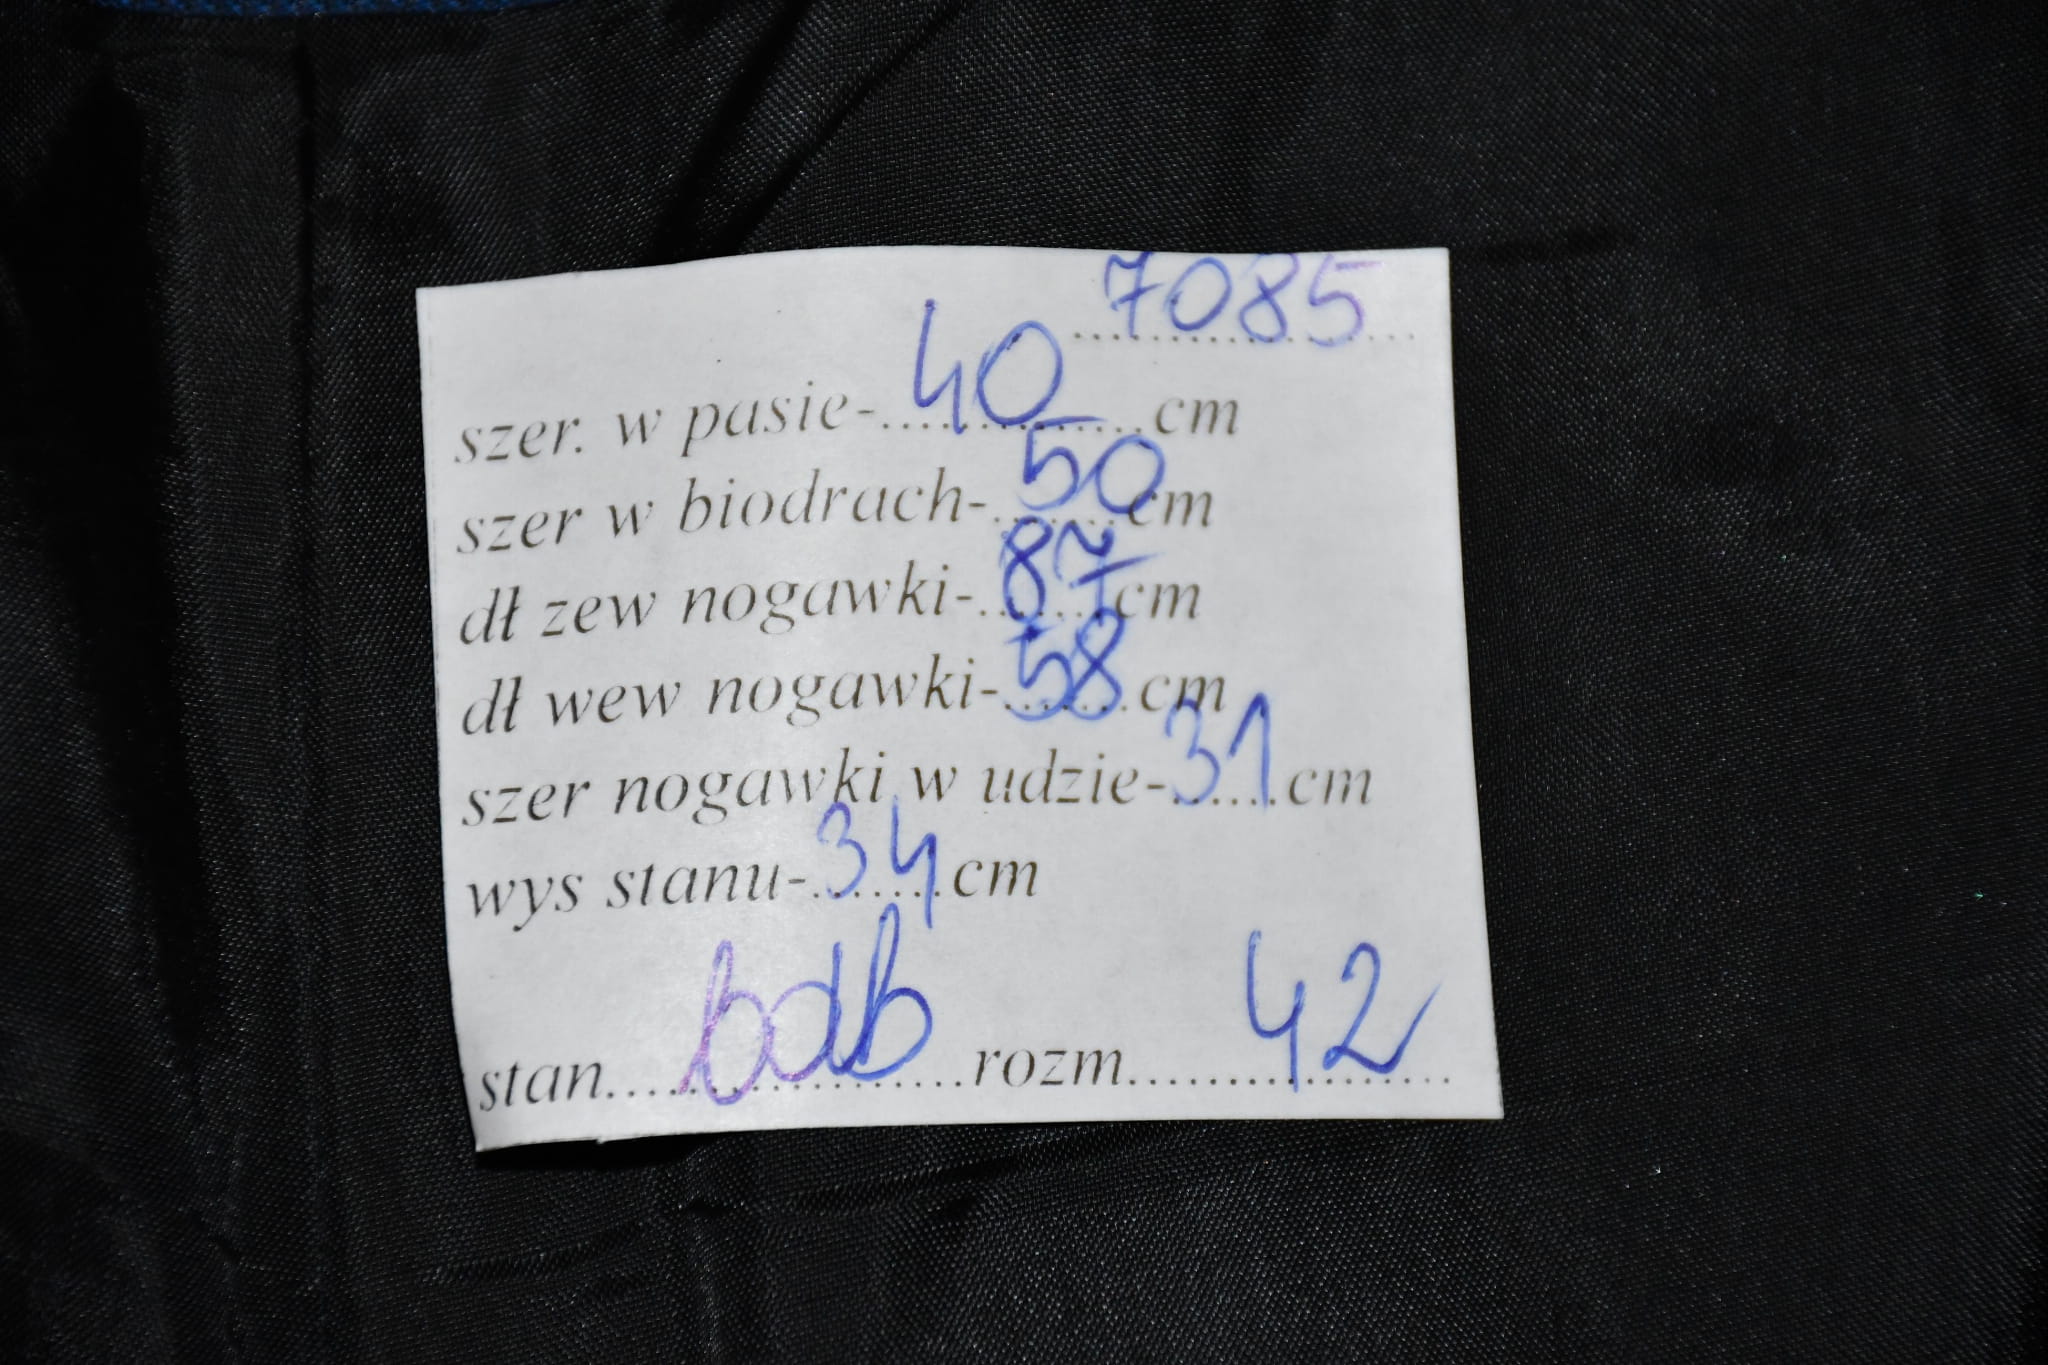 7085
szer. w pasie-40cm
szer w biodrach-50cm
dł zew nogawki-87cm
dł wew nogawki-58cm
szer nogawki w udzie-31cm
wys stanu-34cm
stan....bdb....rozm....42....